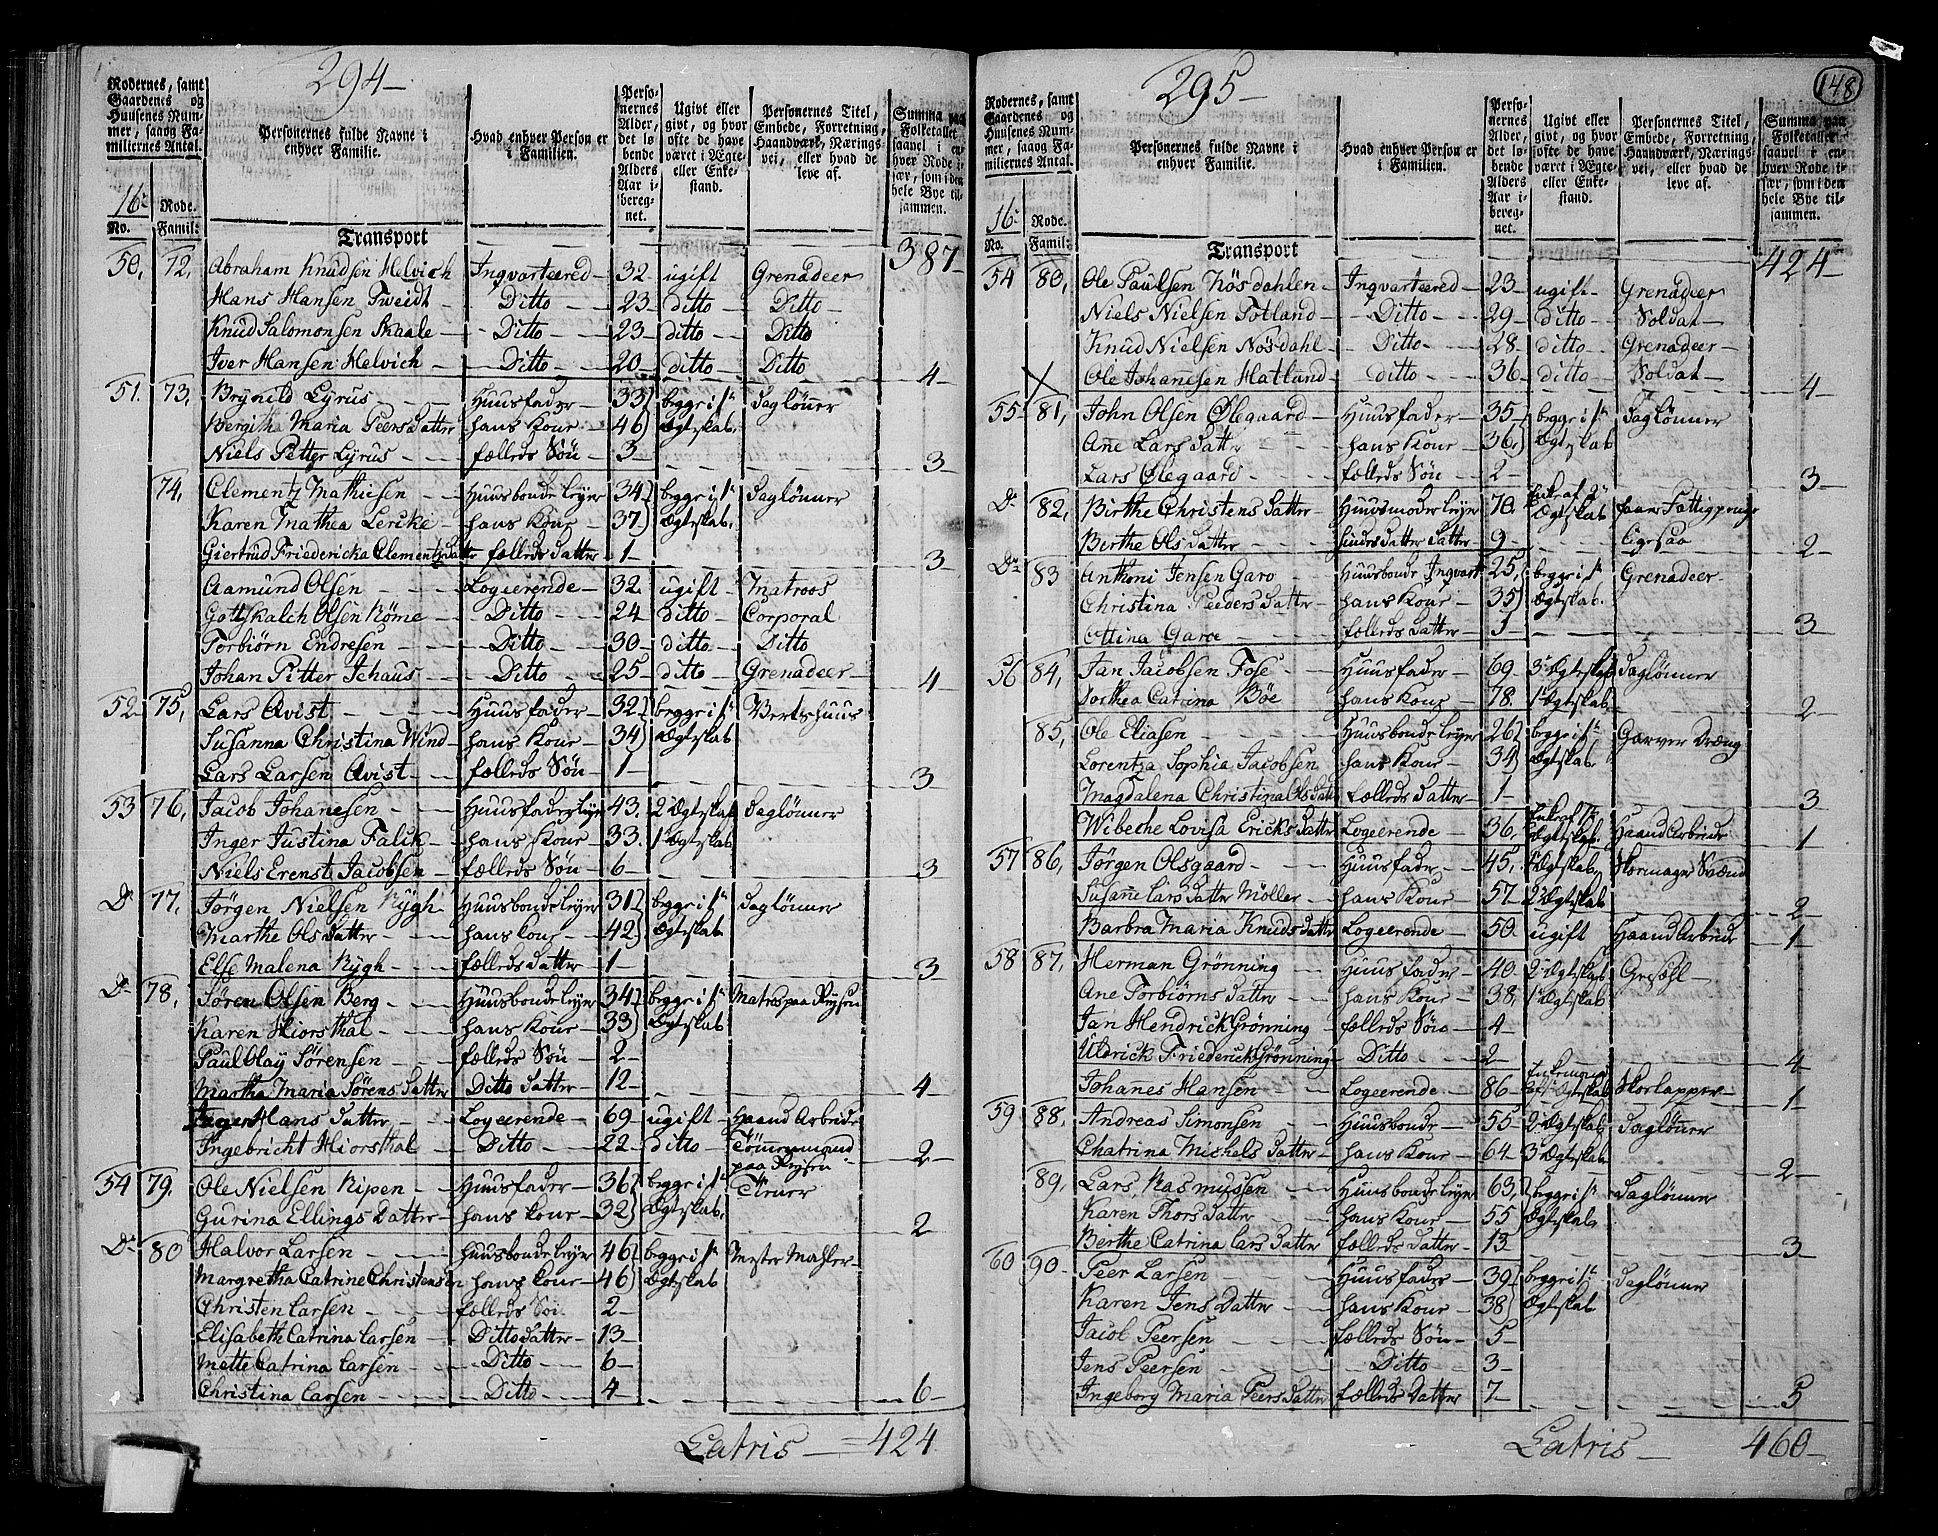 294
Rodernes, samt Gaardenes og Huusenes Nummer, saavog Familiernes Antal.
Personernes fulde Navne i enhver Familie.
Hvad enhver Person er i Familien.
Personernes Alder, det løbende Alders Aar iberegnet.
Ugivt eller givt, og hvor ofte de have været i Ægte- eller Enkestand.
Personernes Titel, Embede, Forretning, Haandværk, Næringsvei, eller hvad de leve af.
Summa paa Folketallet saavel i enhver Rode især, som i den hele Bye tilsammen.
16de Rode.
No. Famil:
Transport 387
50, 72, Abraham Knudsen Helvich Ingvarteered 32 ugift Grenadeer
Hans Hansen Tweidt Ditto 23 ditto Ditto
Knud Salomonsen Skaale Ditto 23 ditto Ditto
Iver Hansen Helvich Ditto 20 ditto Ditto 4
51. 73, Brynild Lyrus Huusfader 33 begge i 1te Daglønner
Bergithe Maria Peers Datter hans Kone 46 Ægtskab.
Niels Petter Lyrus fælleds Søn 3 3
74, Clementz Mathiesen Huusbonde leyer 34 begge i 1te Daglønner
Karen Mathea Lercke hans Kone 37 Ægtskab.
Giertrud Friedericka Clementz Datter fælleds Datter 1 3
Aamund Olsen Logeerende 32. ugift Matroos
Gotskalch Olsen Röme Ditto 24 ditto Corporal
Torbiörn Endresen Ditto 30 ditto Ditto
Johan Pitter Jehaus Ditto 25 ditto Grenadeer 4
52 75, Lars Qvist Huusfader 32 begge i 1te Vertshuus
Susanna Christina Wind hans Kone 34 Ægtskab
Lars Larsen Qvist fælleds Søn 1 3
53 76, Jacob Johanesen Huusfader leyer 43. 2 Ægtskab Daglønner
Inger Justina Falck hans Kone 33. 1 Ægtskab
Niels Ernst Jacobsen fælleds Søn 6 3
Do 77, Jörgen Nielsen Rÿgh Huusbonde leyer 31 begge i 1te Daglønner
Marthe Ols Datter hans Kone 42 Ægtskab
Else Malena Rÿgh fælleds Datter 1 3
Do 78, Sören Olsen Berg Huusbonde leyer 34 begge i 1te Matros paa Reysen
Karen Hiorsthal hans Kone 33 Ægtskab
Paul Olaÿ Sörensen fælleds Søn 2
Martha Maria Sörens Datter Ditto Datter 12 4
Inger Hans Datter Logeerende 69 ugift Haand Arbeide
Ingebricht Hiorsthal Ditto 22 ditto Tömmermand paa Reysen 2
54 79. Ole Nielsen Ripen Huusfader 36 begge i 1te
Gurina Ellings Datter hans Kone 32 Ægtskab. 2
Do 80 Halvor Larsen Huusbonde leyer 46 begge i 1te Mester Mahler
Margretha Catrine Christensen hans Kone 46 Ægtskab
Christen Larsen fælleds Søn 2
Elisabeth Catrina Larsen Ditto Datter 13
Mette Catrina Larsen Ditto 6
Christina Larsen Ditto 4 6
Latris 424
295
148
Rodernes, samt Gaardenes og Huusenes Nummer, saavog Familiernes Antal.
Personernes fulde Navne i enhver Familie.
Hvad enhver Person er i Familien.
Personernes Alder, det løbende Alders Aar iberegnet.
Ugivt eller givt, og hvor ofte de have været i Ægte- eller Enkestand.
Personernes Titel, Embede, Forretning, Haandværk, Næringsvei, eller hvad de leve af.
Summa paa Folketallet saavel i enhver Rode især, som i den hele Bye tilsammen.
16 Rode.
No. Famil:
Transport 424
54 80, Ole Paulsen Nösdahlen Ingvarteered 23 ugift Grenadeer
Niels Nielsen Totland Ditto 29 ditto Soldat
Knud Nielsen Nösdahl Ditto 28 ditto Grenadeer
Ole Johanesen Hatland ditto 36 ditto Soldat 4
55 81, John Olsen Ölegaard Huusfader 35 begge i 1te Daglønner
Ane Lars Datter hans Kone 36 Ægtskab
Lars Ölegaard fælleds Søn 2 3
Do 82, Birthe Christens Datter Huusmoder leyer 70 Ægtskab faaer Fattigpenge
Berthe Ols Datter hindes Datter Datter 9 ligesaa 2
Do 83 Anthoni Jensen Garo Huusbonde Ingvart 25, begge i 1te Grenadeer
Christina Peeders Datter hans Kone 35 Ægtskab.
Ottina Garoe fælleds Datter 3
56 84, Jan Jacobsen Fose Huusfader 69 3 Ægtskab Daglønner
Dorthea Catrina Böe hans Kone 78. 1 Ægtskab 2
85, Ole Eliasen Huusbonde leyer 26 begge i 1te Garver Dreng
Lorentza Sophia Jacobsen hans Kone 34 Ægtskab
Magdalena Christina Ols Datter fælleds Datter 1 3
Wibeche Lovisa Ericks Datter Logeerende 36, Ægtskab Haand Arbeide 1
57 86, Jörgen Olsgaard Huusfader 45, Ægtskab Skomager Svend
Susanne Lars Datter Möller hans Kone 57 2 Ægtskab 2
Barbra Maria Knuds Datter Logeerende 50. ugift Haand Arbeide 1
58 87, Herman Grönning Huusfader 40 2 Ægtskab Gesæll
Ane Torbiörns Datter hans Kone 38, 1 Ægtskab
Jan Hendrick Grönning fælleds Søn 4
Uldrick Friederick Grönning Ditto 2 4
Johanes Hansen Logeerende 86 Ægtskab Skoelapper 1
59 88, Andreas Simonsen Huusbonde 55 2 Ægtskab Daglønner
Chatrina Michels Datter hans Kone 64 3 Ægtskab 2
89, Lars Rasmussen Huusbonde leyer 63, begge i 1te Daglønner
Karen Thors Datter hans Kone 55 Ægtskab
Berthe Catrina Lars Datter fælleds Datter 13 3
60 90 Peer Larsen Huusfader 39 begge i 1te Daglønner
Karen Jens Datter hans Kone 38 Ægtskab
Jacob Peersen fælleds Søn 5
Jens Peersen Ditto 3
Ingeborg Maria Peers Datter fælleds Datter 7 5
Latris 460